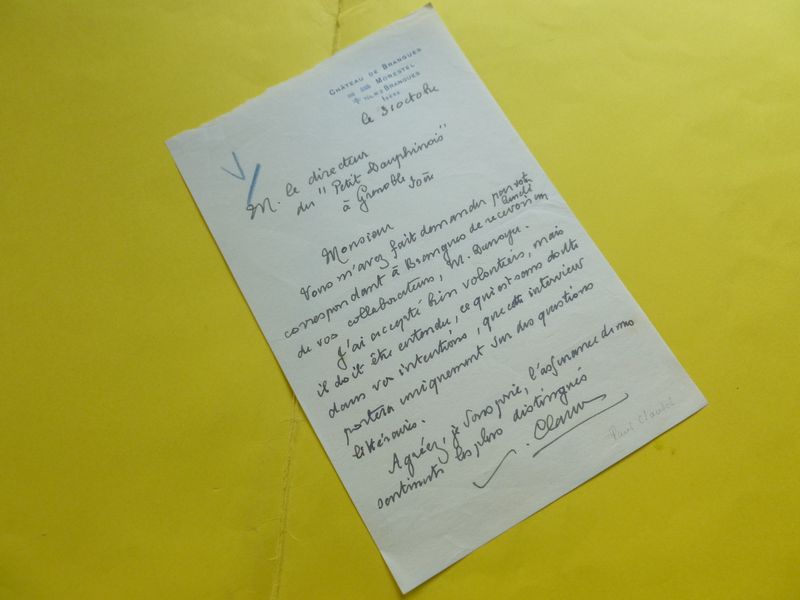 CHÂTEAU DE BRANGUES
MORESTEL
BRANGUES
ISÈRE
le 31 octobre
M. le directeur
du "Petit Dauphinois"
à Grenoble
Monsieur
Vous m'avez fait demander par votre
correspondant à Brangues de recevoir un
de vos collaborateurs, M.
J'ai accepté bien volontiers, mais
il doit être entendu, ce qui est sans doute
dans vos intentions, que cette interview
portera uniquement sur des questions
littéraires.
Agréez, je vous prie, l'assurance de mes
sentiments les plus distingués
Paul Claudel